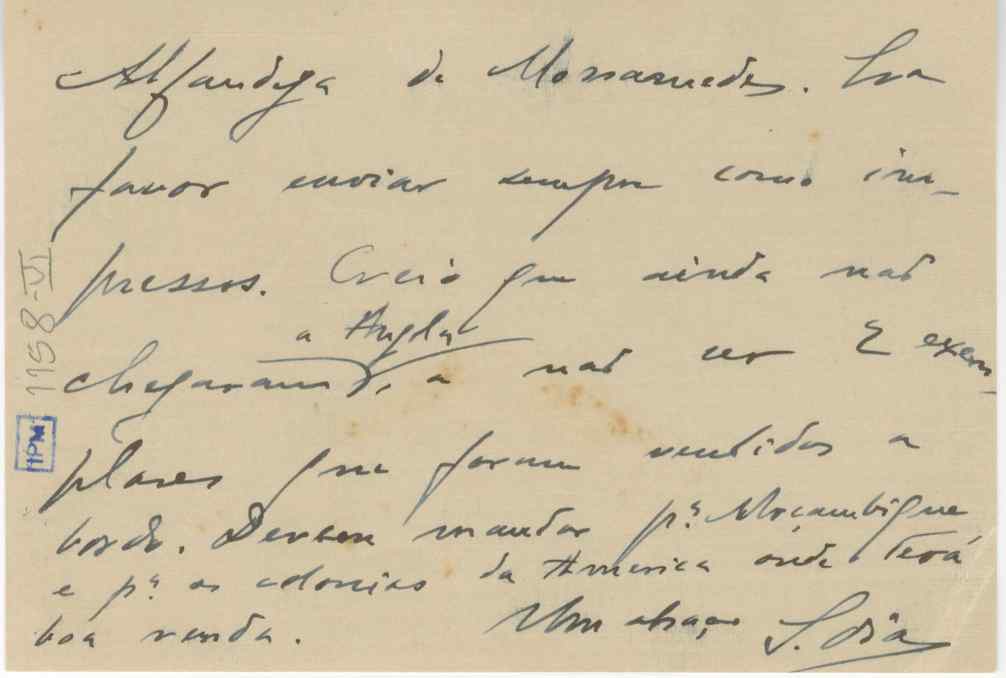 Alfandega de Mossamedes. Era
favor enviar sempre como im-
pressos. Creio que ainda não
a Angola
chegaram, a não ser 2 exem-
plares que foram vendidos a
bordo. Devem mandar pª. Moçambique
e pª. as colonias da America onde terá
boa venda. Um abraço S. Dias
1158-VI
HPM